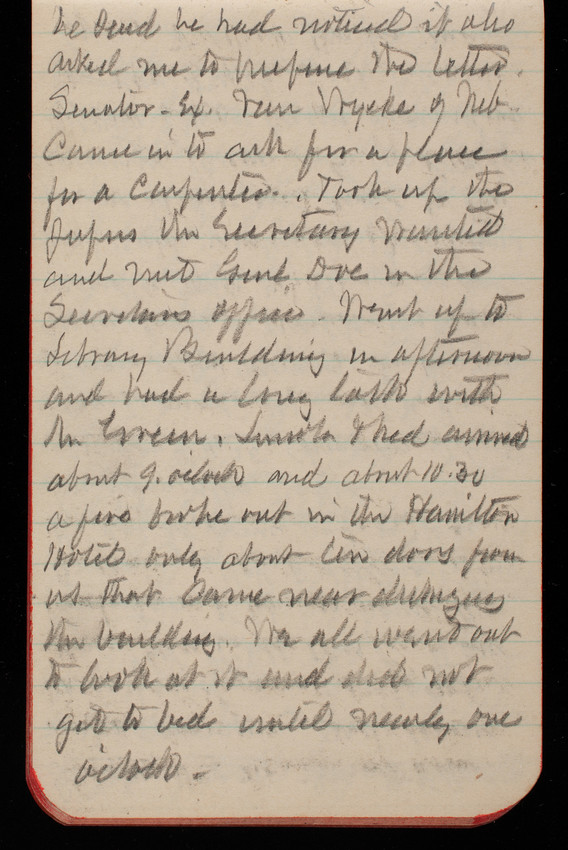 he said he had noticed it also
asked me to prepare the letter.
Senator-Ex. Van Wycke of Neb
Came in to ask for a place
for a Carpenter. Took up the
papers the Secretary wanted
and met Genl Doe in the
Secretary's office. Went up to
Library Building in afternoon
and had a long talk with
Mr Green. & had arrived
about 9. oclock and about 10.30
a fire broke out in the Hamilton
Hotel only about ten doors from
us that Came near destroying
the building. We all went out
to look at it and did not
get to bed until nearly one
oclock.